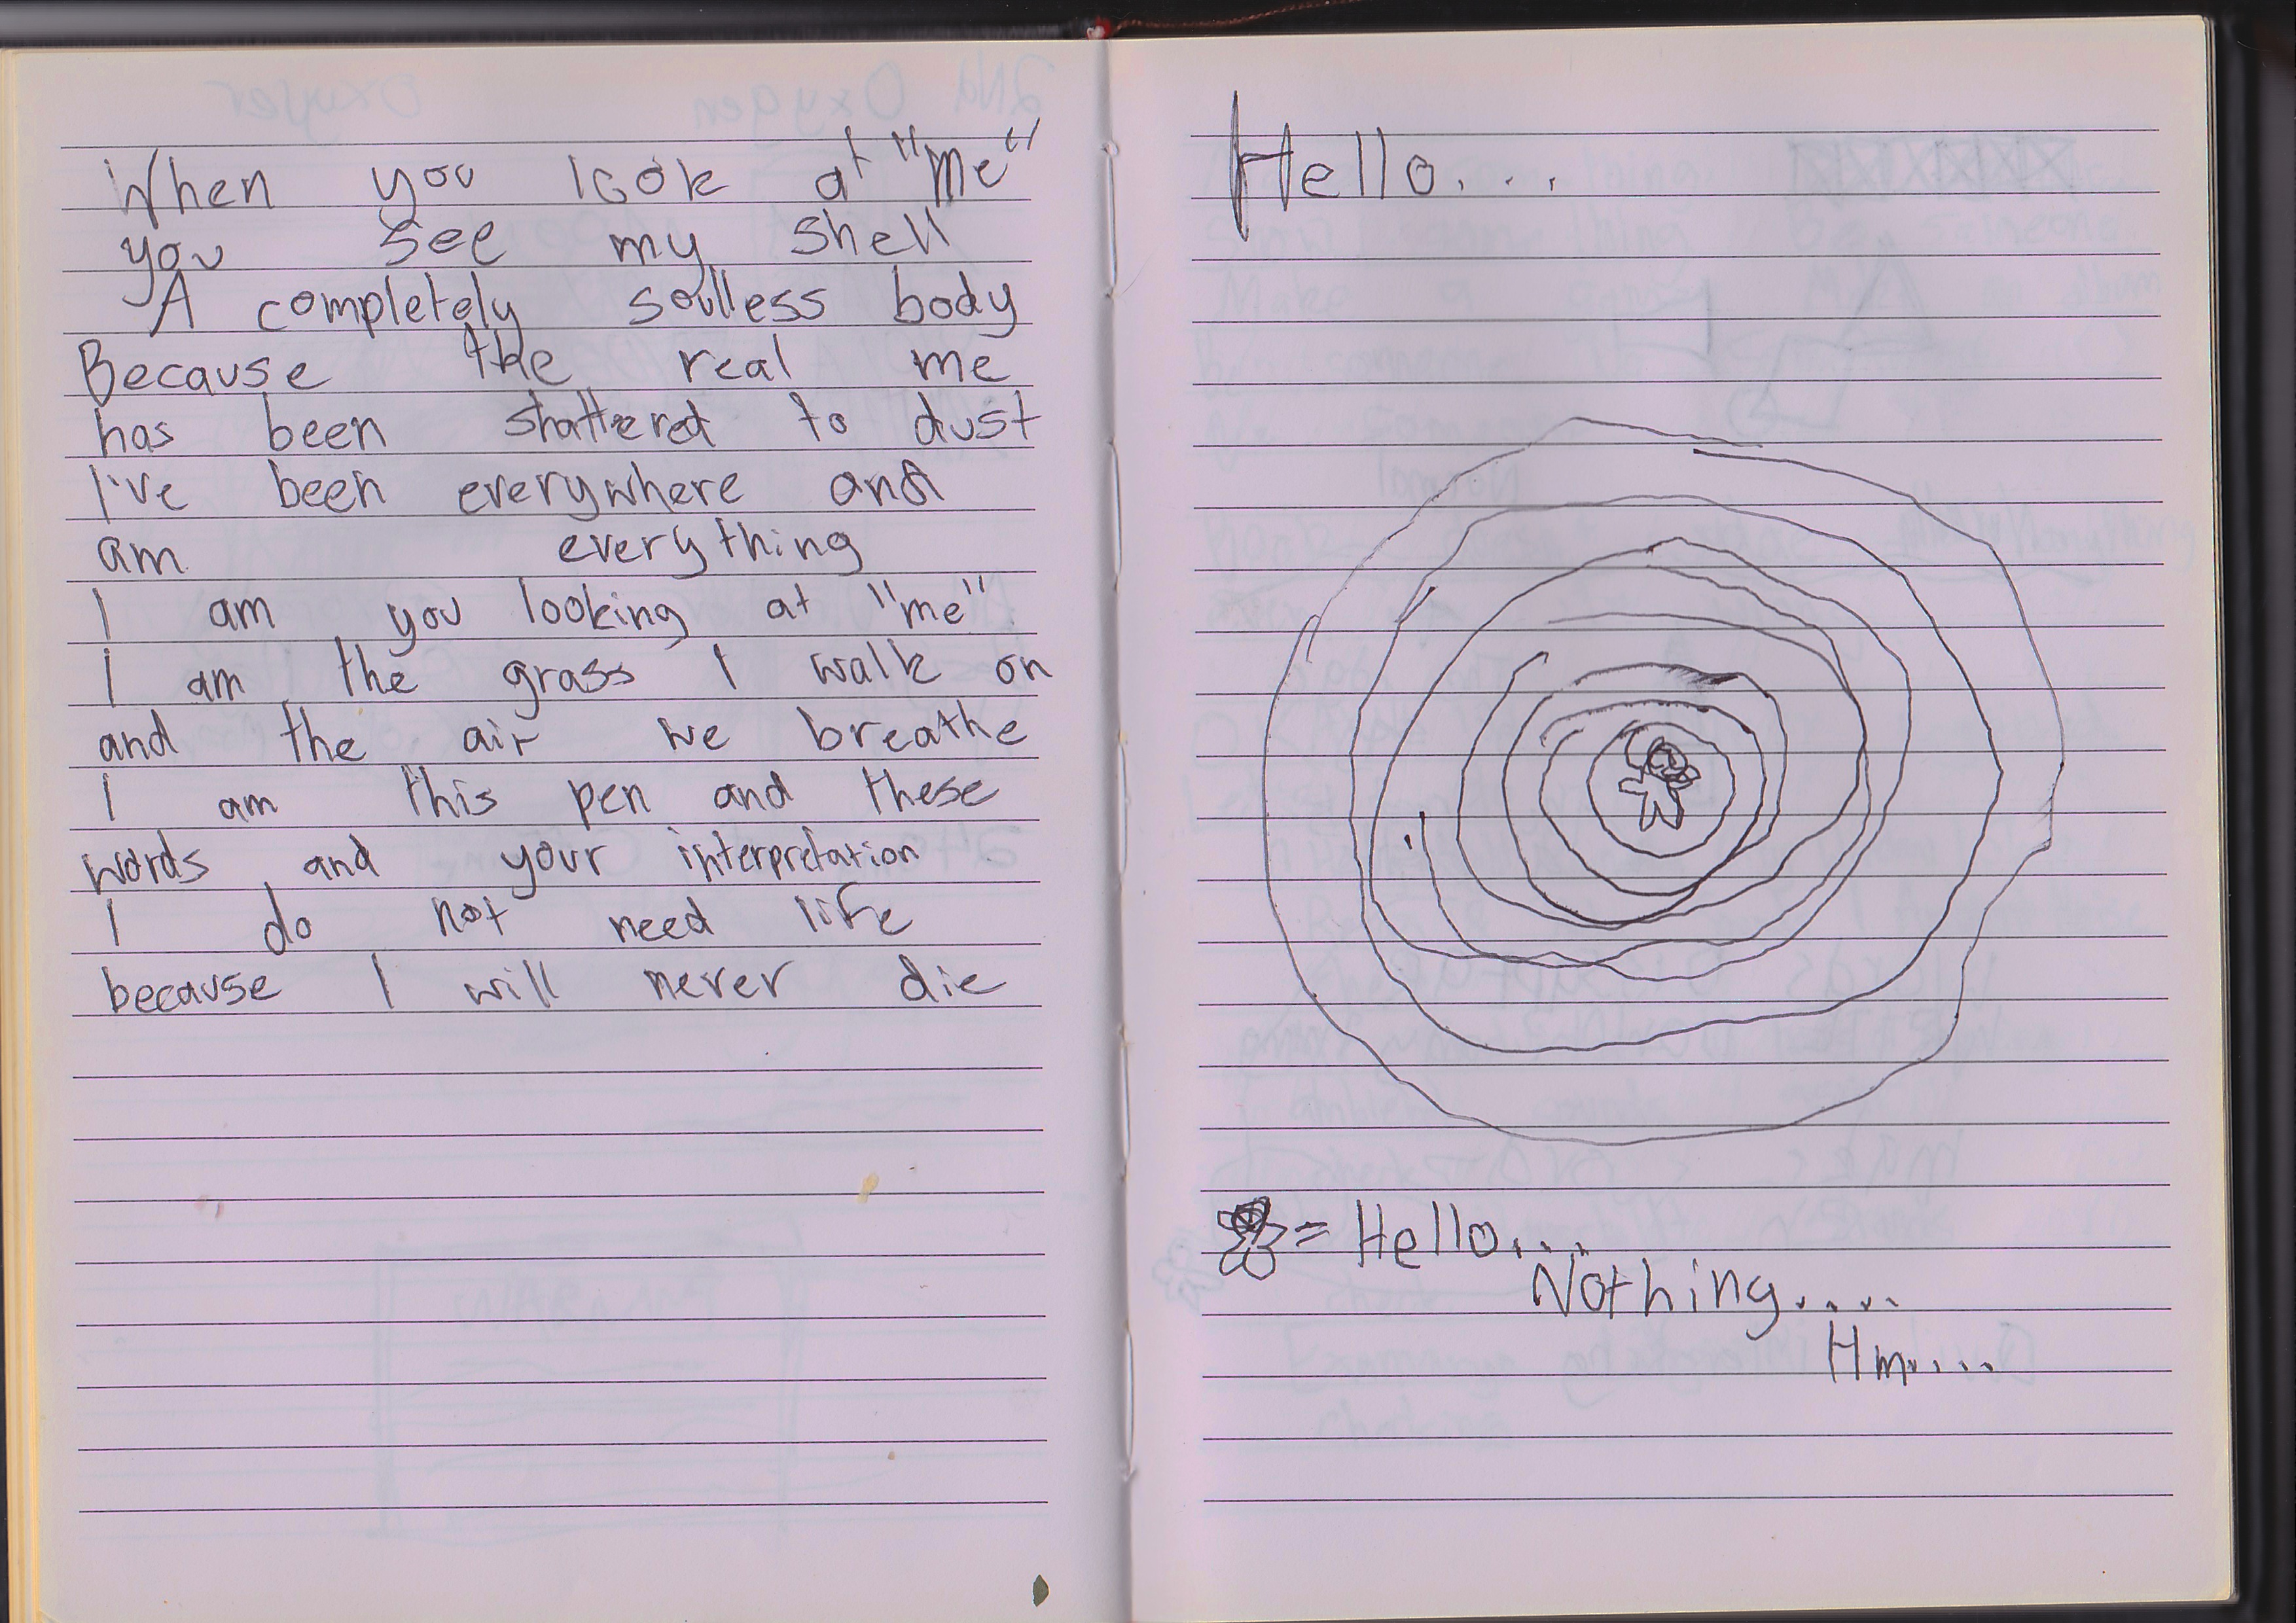 When you look at "me"
you see my shell
A completely soulless body
Because the real me
has been shattered to dust
I've been everywhere and
am everything
I am you looking at "me"
I am the grass I walk on
and the air we breathe
I am this pen and these
words and your interpretation
I do not need life
because I will never die
Hello...
= Hello...
Nothing....
Hm....